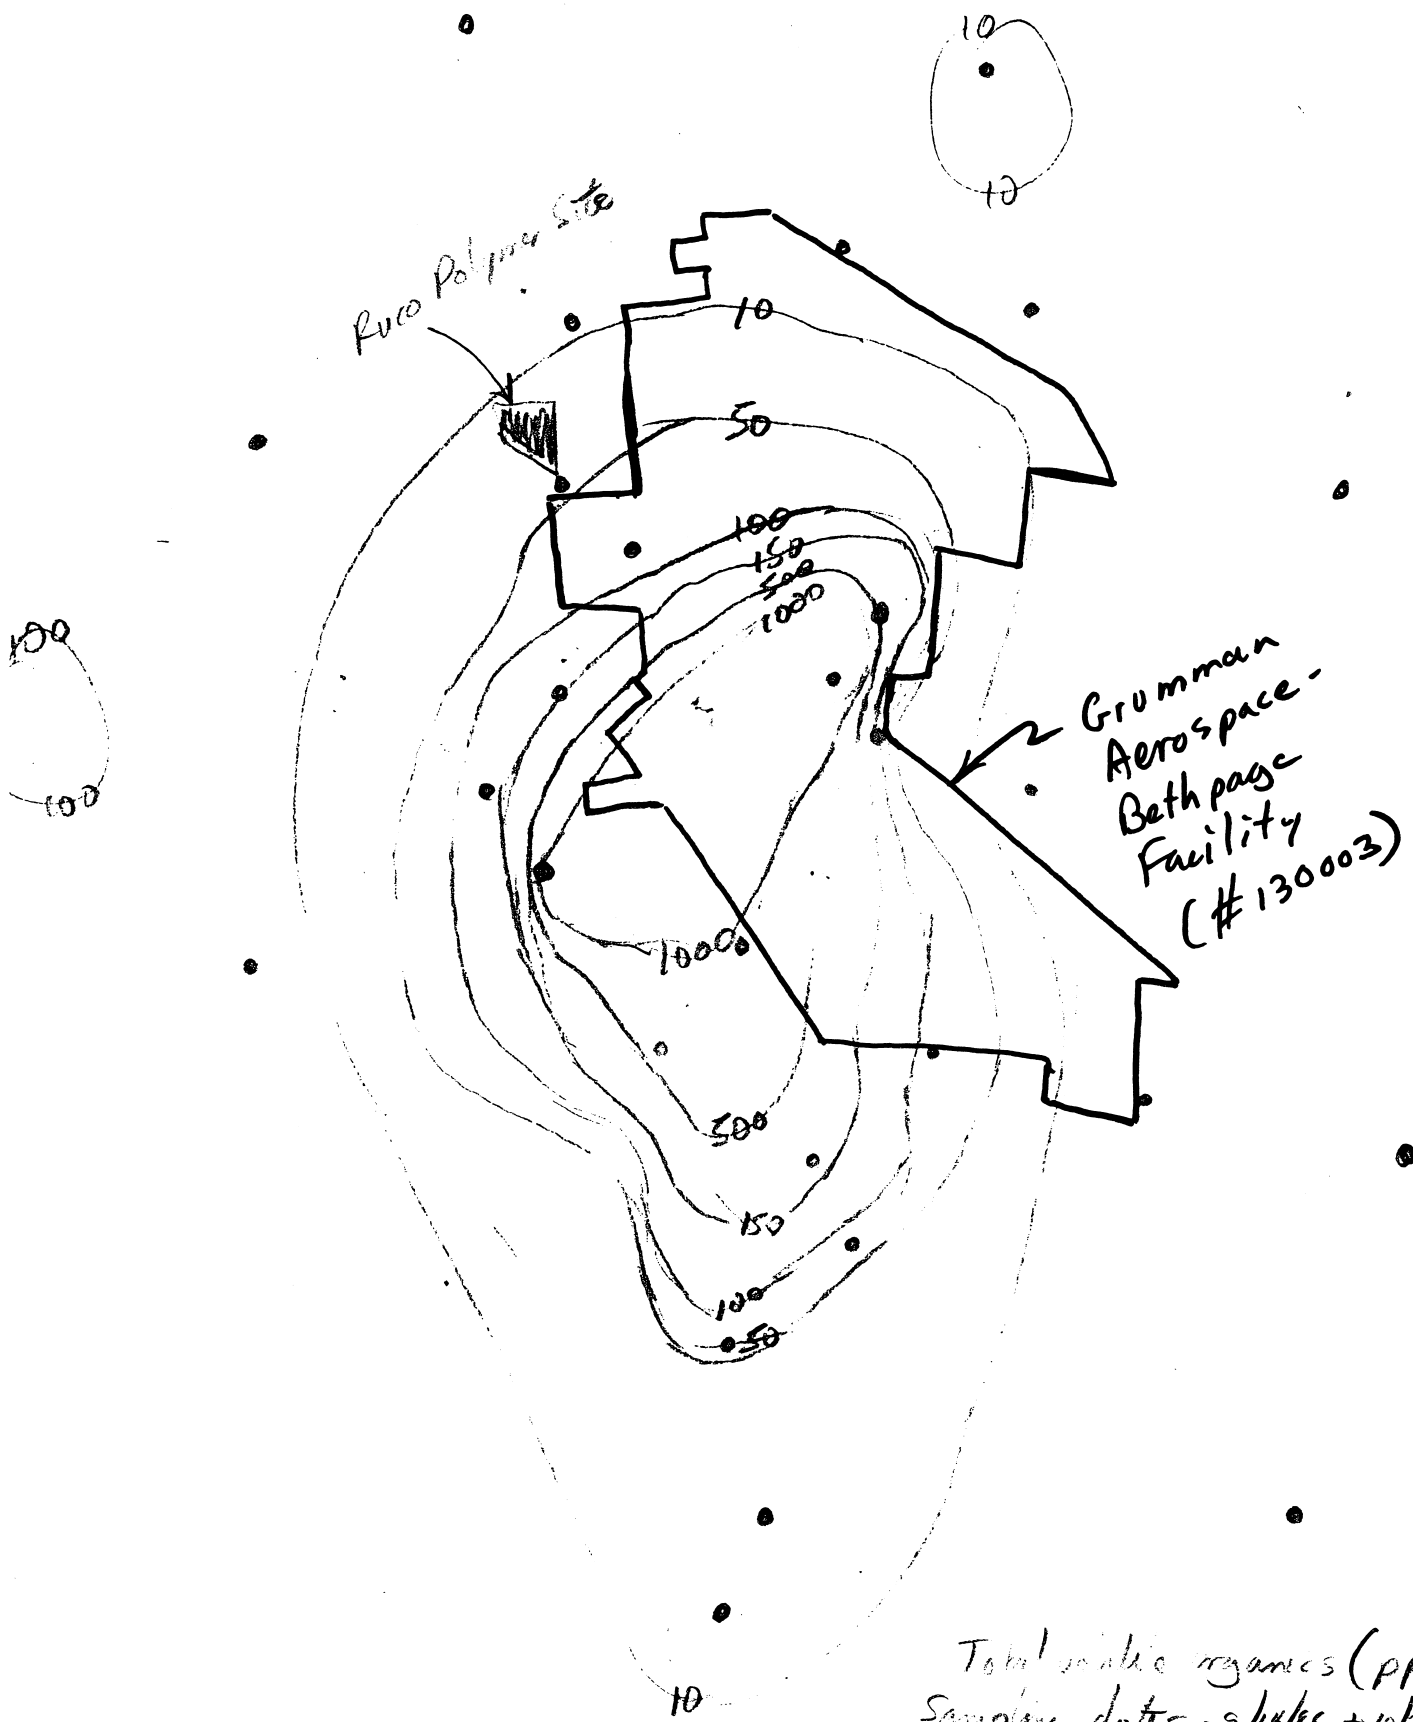 10
10
Ruco Polymer Site
10
50
100
150
500
1000
100
100
Grumman
Aerospace-
Bethpage
Facility
(#130003)
1000
500
150
100
50
10
Total organics (pp
Sampling